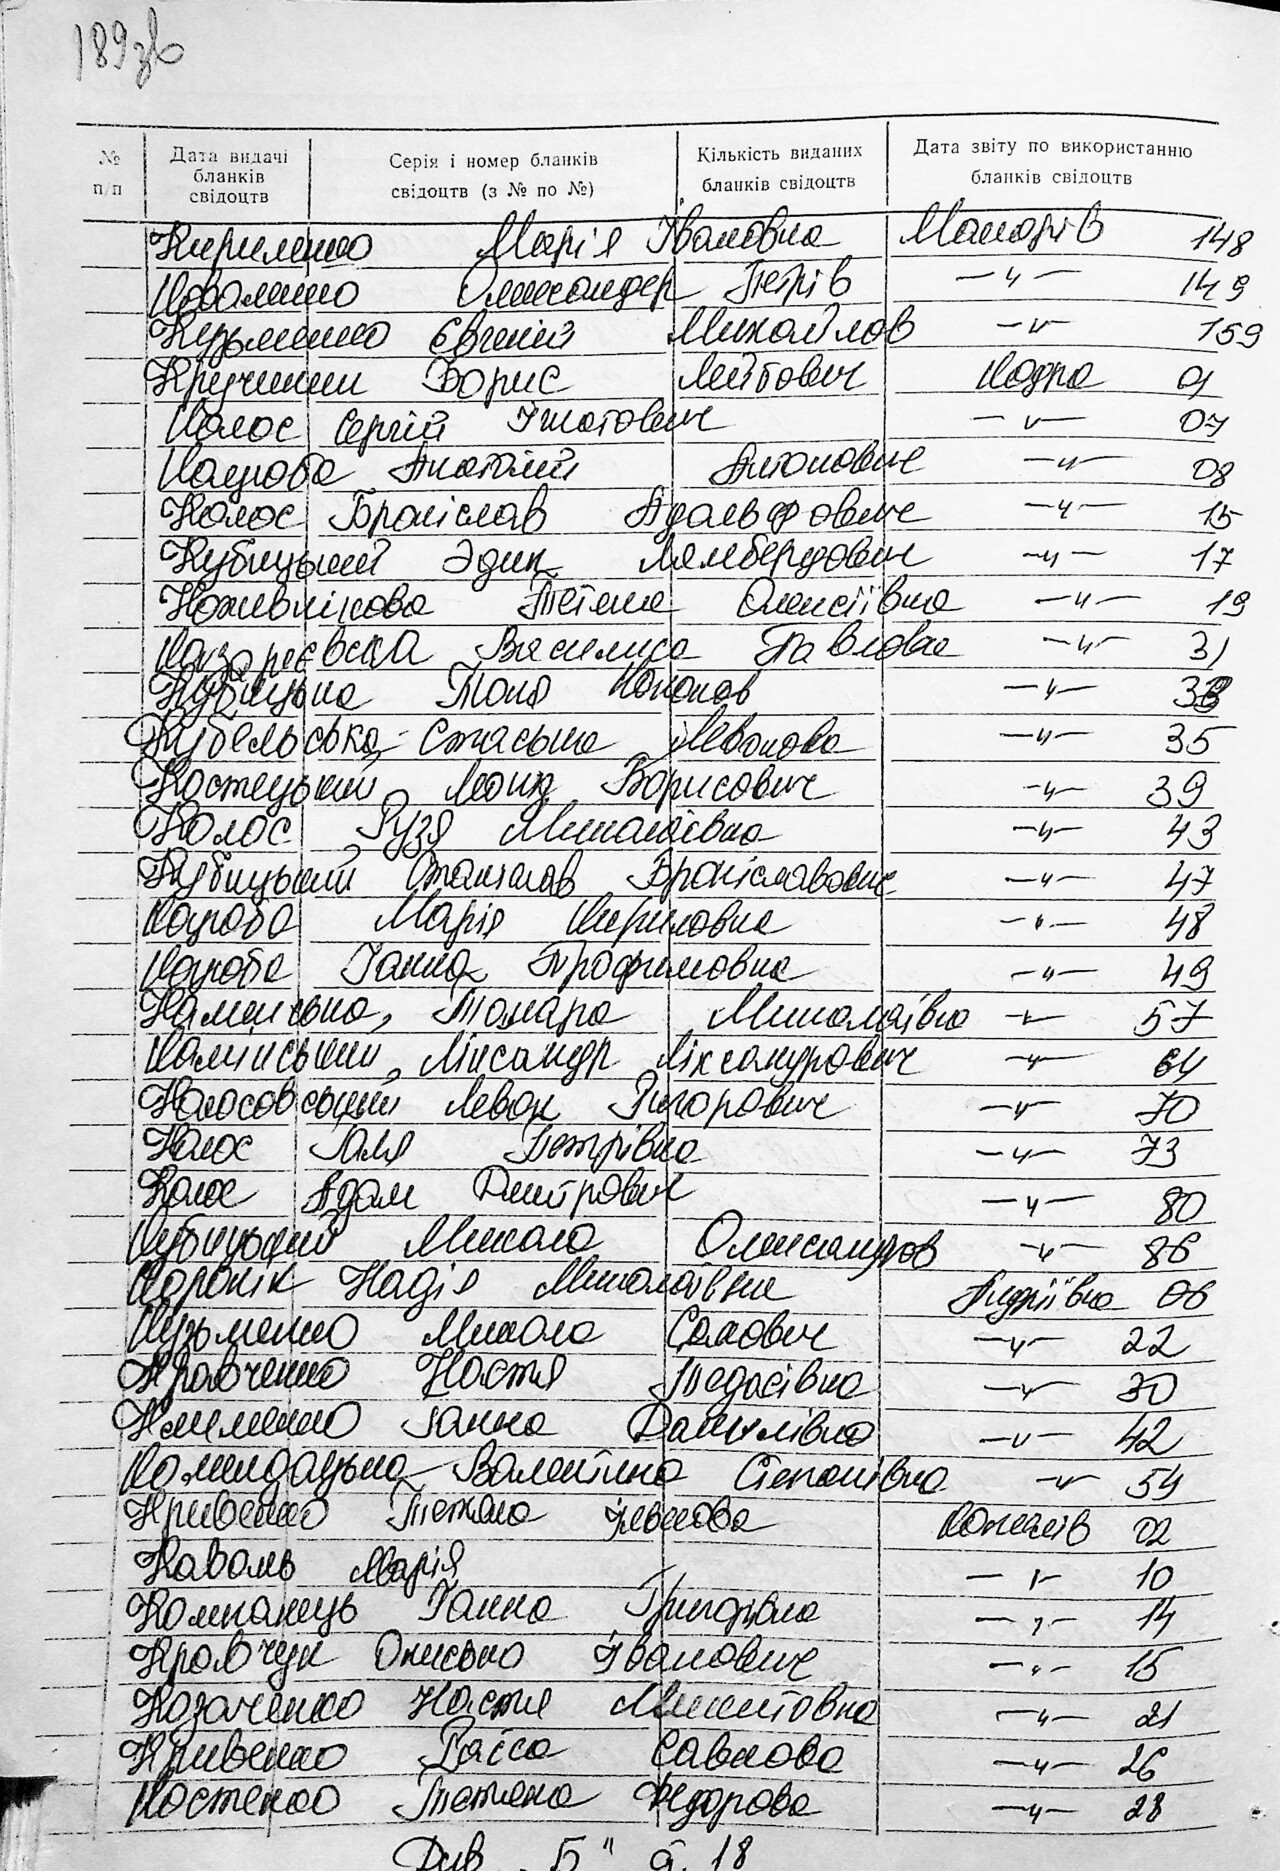 189зв
№ п/п Дата видачі бланків свідоцтв Серія і номер бланків свідоцтв (з № по №) Кількість виданих бланків свідоцтв Дата звіту по використанню бланків свідоцтв
Кириленко Марія Івановна Макарів 148
Коваленко Олександер Петрів —„— 149
Кузьменко Євгеній Михайлов —„— 159
Кручинин Борис Лейбович Кодра 01
Колос Сергій Ігнатович —„— 07
Кацюба Анатолій Антонович —„— 08
Колос Броніслав Адольфович —„— 15
Кубицький Эдик Лямбердович —„— 17
Кожевнікова Тетяна Олексіївна —„— 19
Казареєвска Василиса Павловна —„— 31
Кубицька Толя Конон —„— 33
Кубельська Стаська Левонова —„— 35
Костецький Леонід Борисович —„— 39
Колос Рузя Миколаївна —„— 43
Кубицький Станіслав Броніславович —„— 47
Кацюба Марія Кириловна —„— 48
Кацюба Ганна Трофимовна —„— 49
Камінська, Томара Миколаївна —„— 57
Камінський, Ліксандр Ліксандрович —„— 64
Колосовський Левон Григорович —„— 70
Колос Галя Петрівна —„— 73
Колос Адам Дмитрович —„— 80
Кубицький Микола Олександров —„— 86
Надія Миколаївна Андріївка 06
Кузьменко Микола Савович —„— 22
Кравченко Настя Тедосівна —„— 30
Клименко Ганна Данилівна —„— 42
Валентіна Степанівна —„— 54
Кривенко Тетяна Комалів 02
Коваль Марія —„— 10
Компанець Ганна Григорівна —„— 14
Кравчук Ониско Іванович —„— 15
Козаченко Настя Микитовна —„— 21
Кривенко Раїса Савкова —„— 26
Костенко Тетяна Федорова —„— 28
Див. „Б" с. 18